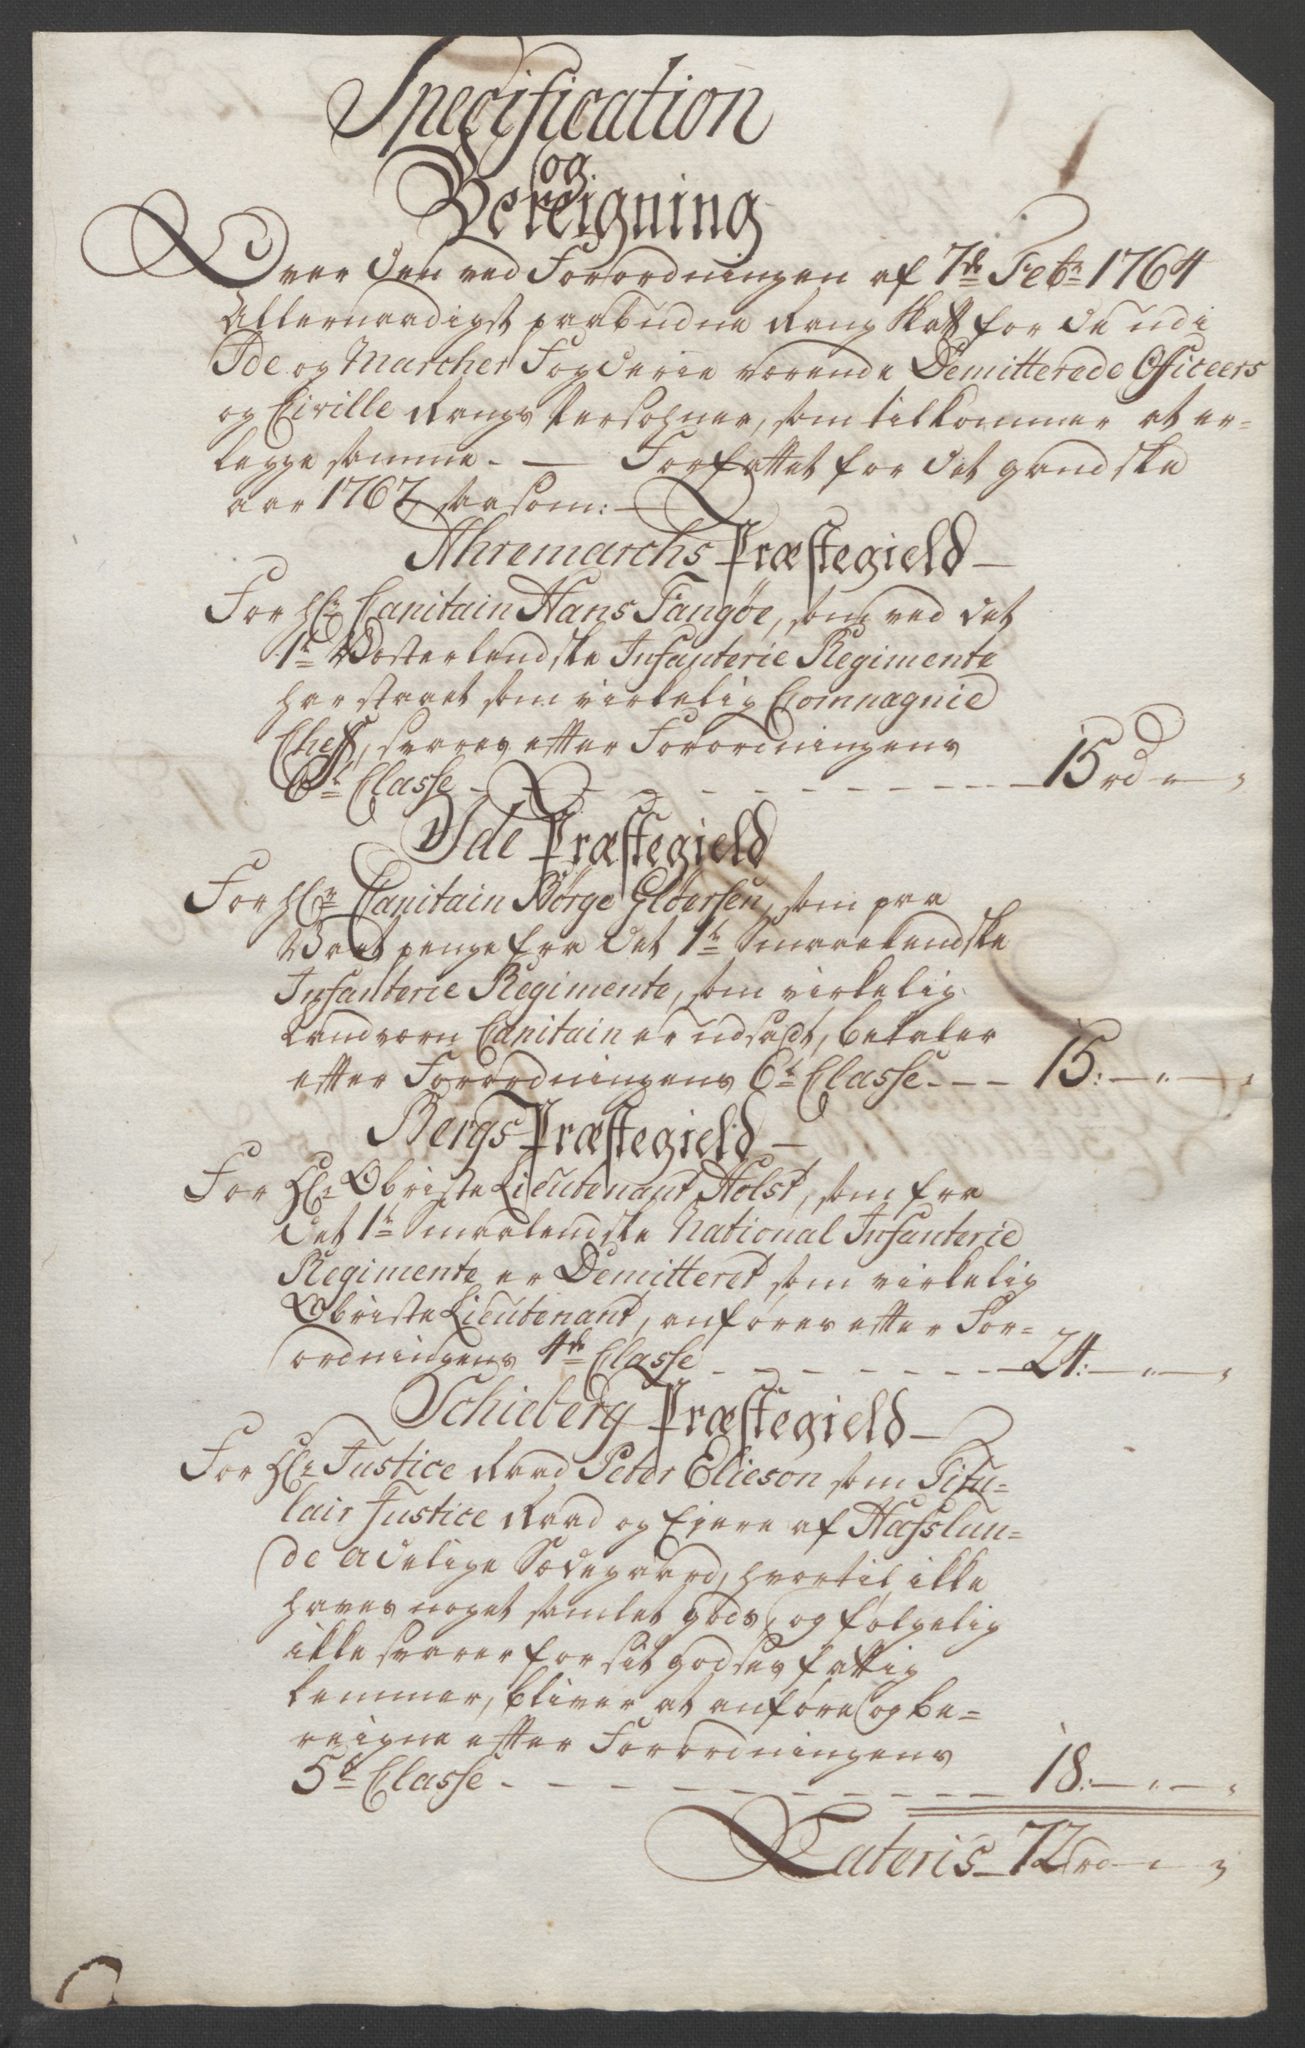 Specification
og
Bereigning
Over den ved Forordningen af 7de Febr: 1764
Allernaadigst paabudne Rang Skatt for de udi
Ide og Marcher Fogderie værende Demitterede Officeers
og Civille Rangs Persohner, som tilkommer at er-
legge samme. — Forfattet for det gandske
aar 1767, saasom:
Ahremarchs Præstegield —
For Hr: Capitain Hans Fangøe, som ved det
1te Vesterlendske Infanterie Regimente
har staaet som virkelig Compagnie
Cheff, svares efter Forordningens
6te Classe - - - - - - - - - 15 rd — " — "
Ide Præstegield
For Hr: Capitain Børge Eldersen, som paa
Vart penge fra det 1te Smaalendske
Infanterie Regimente, som virkelig
Landværn Capitain er udsadt, betaler
efter Forordningens 6te Classe - - - 15: — " — "
Bergs Præstegield —
For Hr: Obriste Lieutenant Holst, som fra
det 1te Smaalendske National Infanterie
Regimente er Demitteret som virkelig
Obriste Lieutenant, anføres efter For-
ordningens 4de Classe - - - - - - - 24: — " — "
Schieberg Præstegield —
For Hr: Justice Raad Peter Elieson som Titu-
lair Justice Raad og Ejere af Hafslun-
de adelige Sædegaard, hvortil ikke
haves noget samlet gods, og følgelig
ikke svarer for sit godses fattig
lemmer, bliver at anføre og be-
reigne efter Forordningens
5te Classe - - - - - - - - - 18: — " — "
Lateris 72 rd — " — "